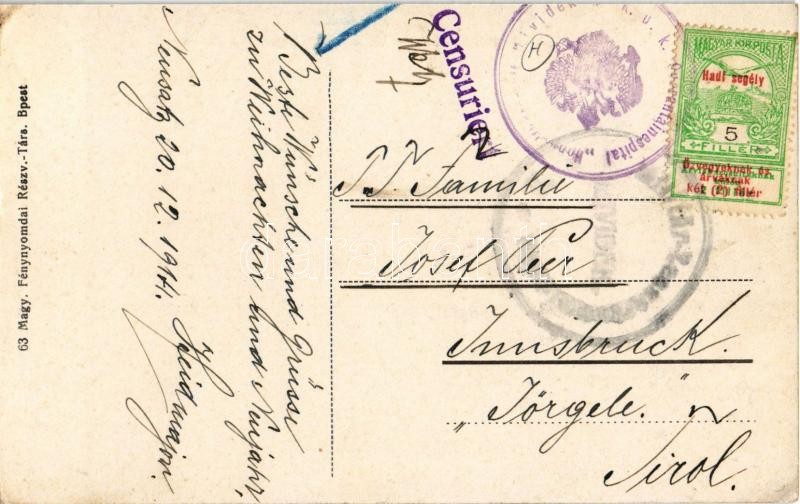 Neusatz 20.12.1914.
Beste Wünsche und Grüsse
zu Weihnachten und Neujahr,
Heidmajer
63 Magy. Fénynyomdai Részv.-Társ. Bpest
Censuriert
2
H
MAGYAR KIR. POSTA
Hadi segély
5
FILLÉR
Özvegyeknek és
árváknak
két (2) fillér
T. Familie
Josef Peer
Innsbruck.
"Jörgele."
Tirol.